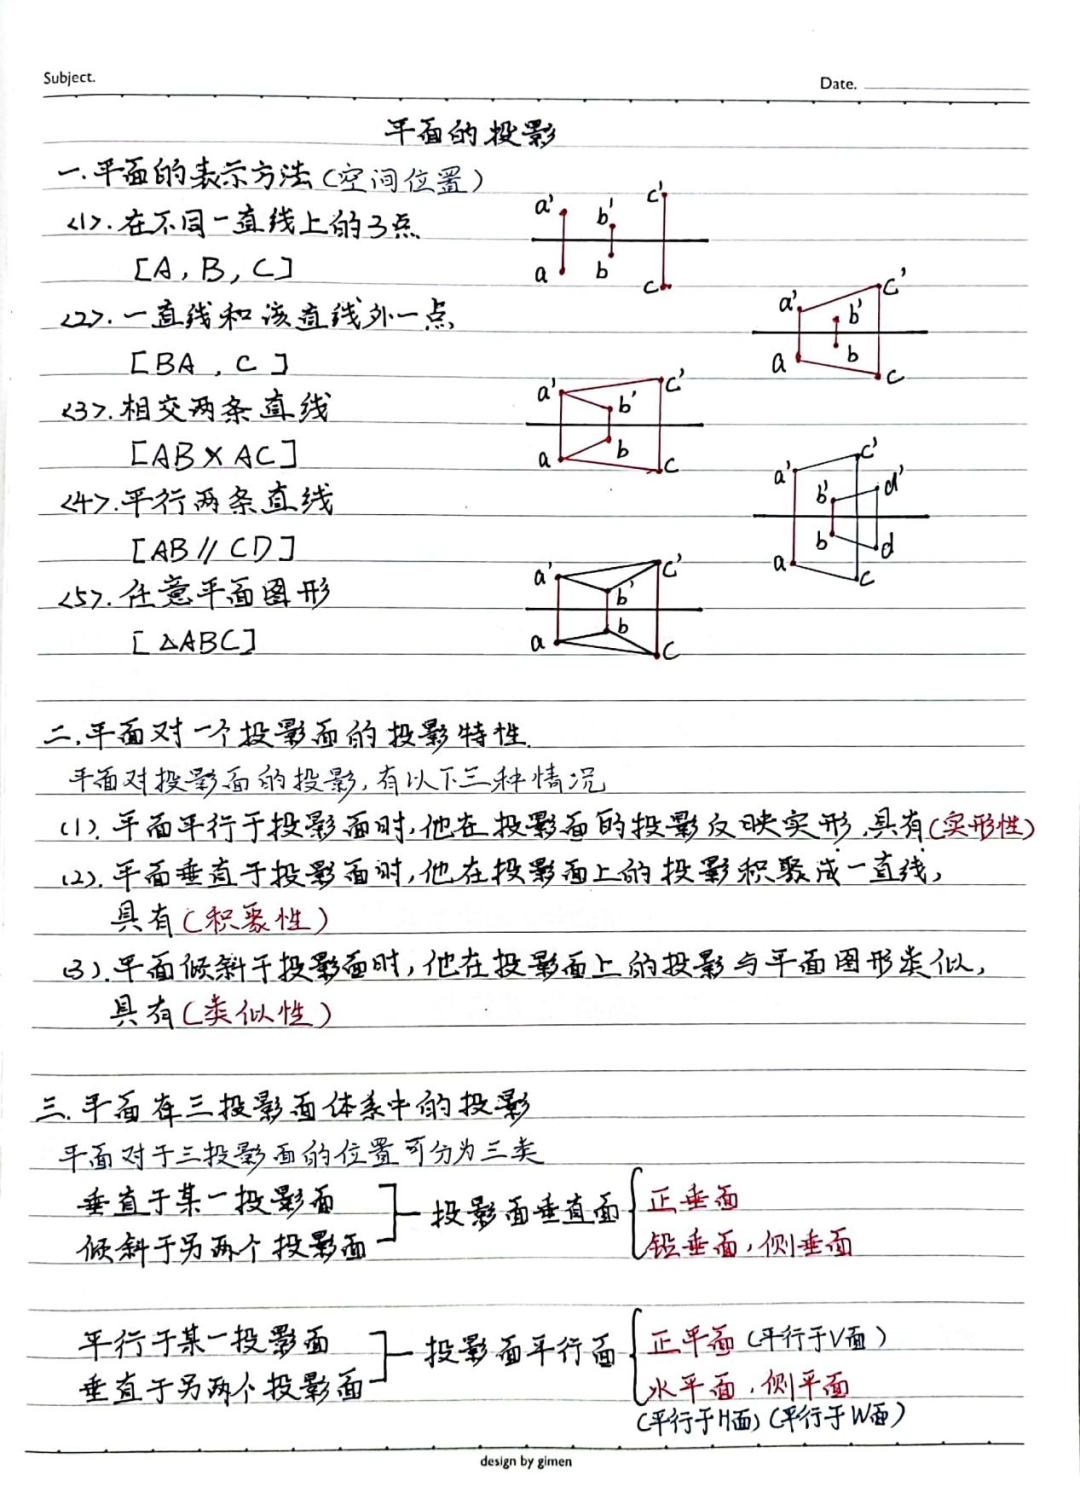 Subject.
Date.
平面的投影
一.平面的表示方法(空间位置)
<1>.在不同一直线上的3点
[A, B, C]
a' b' c'
a b c
<2>.一直线和该直线外一点
[BA , C ]
a' b' c'
a b c
<3>.相交两条直线
[AB X AC]
a' b' c'
a b c
<4>.平行两条直线
[AB // CD]
a' c' b' d'
a b c d
<5>.任意平面图形
[ △ABC]
a' b' c'
a b c
二.平面对一个投影面的投影特性.
平面对投影面的投影,有以下三种情况
(1).平面平行于投影面时,他在投影面的投影反映实形,具有(实形性)
(2).平面垂直于投影面时,他在投影面上的投影积聚成一直线,
具有(积聚性)
(3).平面倾斜于投影面时,他在投影面上的投影与平面图形类似,
具有(类似性)
三.平面在三投影面体系中的投影
平面对于三投影面的位置可分为三类
垂直于某一投影面
倾斜于另两个投影面
投影面垂直面
正垂面
铅垂面,侧垂面
平行于某一投影面
垂直于另两个投影面
投影面平行面
正平面(平行于V面)
水平面,侧平面
(平行于H面)(平行于W面)
design by gimen